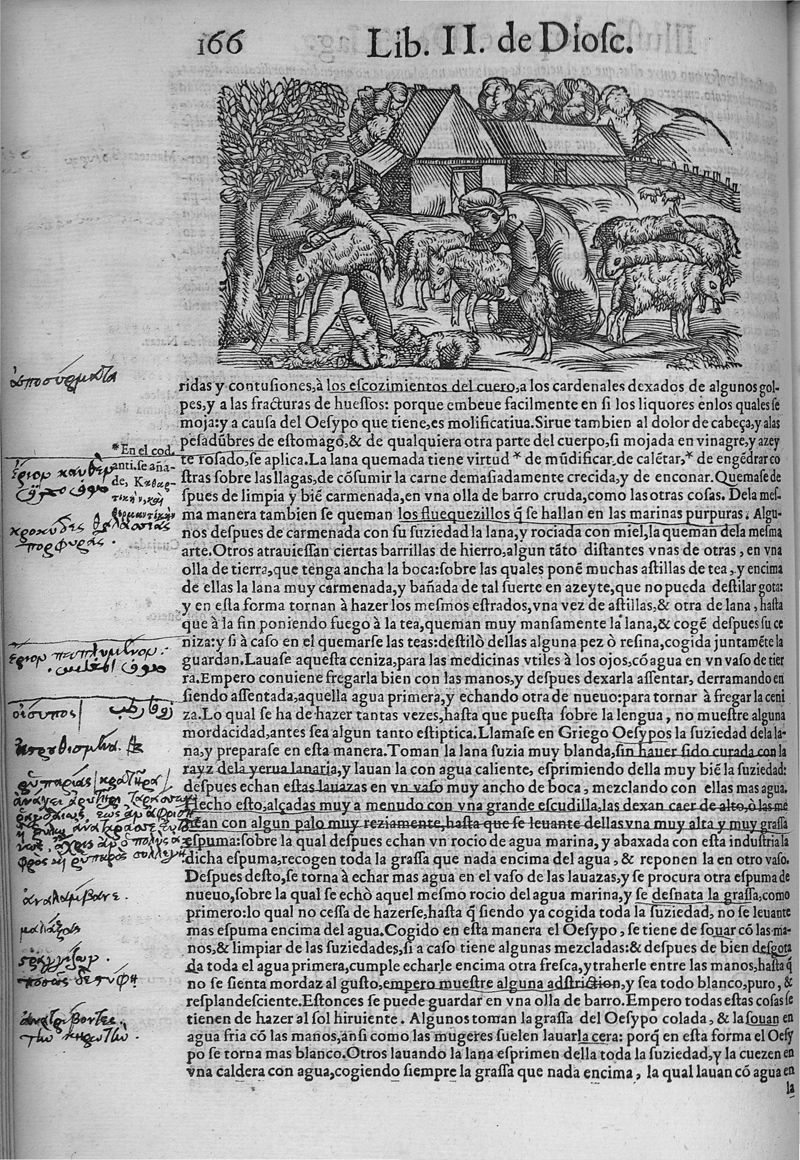 166
Lib. II. de Diosc.
ridas y contusiones, à los escozimientos del cuero, a los cardenales dexados de algunos gol-
pes, y a las fracturas de huessos: porque embeue facilmente en si los liquores enlos quales se
moja: y a causa del Oesypo que tiene, es molificatiua. Sirue tambien al dolor de cabeça, y alas
pesadũbres de estomago, & de qualquiera otra parte del cuerpo, si mojada en vinagre, y azey
te rosado, se aplica. La lana quemada tiene virtud * de mũdificar, de calẽtar, * de engẽdrar co
stras sobre las llagas, de cósumir la carne demasiadamente crecida, y de enconar. Quemase de
spues de limpia y bié carmenada, en vna olla de barro cruda, como las otras cosas. Dela mes-
ma manera tambien se queman los fluequezillos q̃ se hallan en las marinas purpuras. Algu-
nos despues de carmenada con su suziedad la lana, y rociada con miel, la queman dela mesma
arte. Otros atrauiessan ciertas barrillas de hierro, algun tãto distantes vnas de otras, en vna
olla de tierra, que tenga ancha la boca: sobre las quales poné muchas astillas de tea, y encima
de ellas la lana muy carmenada, y bañada de tal suerte en azeyte, que no pueda destilar gota:
y en esta forma tornan à hazer los mesmos estrados, vna vez de astillas, & otra de lana, hasta
que à la fin poniendo fuego à la tea, queman muy mansamente la lana, & cogé despues su ce
niza: y si à caso en el quemarse las teas: destiló dellas alguna pez ò resina, cogida juntaméte la
guardan. Lauase aquesta ceniza, para las medicinas vtiles à los ojos, có agua en vn vaso de tier
ra. Empero conuiene fregarla bien con las manos, y despues dexarla assentar, derramando en
siendo assentada, aquella agua primera, y echando otra de nueuo: para tornar à fregar la ceni
za. Lo qual se ha de hazer tantas vezes, hasta que puesta sobre la lengua, no muestre alguna
mordacidad, antes sea algun tanto estiptica. Llamase en Griego Oesypos la suziedad dela la-
na, y preparase en esta manera. Toman la lana suzia muy blanda, sin hauer sido curada con la
rayz dela yerua lanaria, y lauan la con agua caliente, esprimiendo della muy bié la suziedad:
despues echan estas lauazas en vn vaso muy ancho de boca, mezclando con ellas mas agua.
Hecho esto, alçadas muy a menudo con vna grande escudilla, las dexan caer de alto, ò las me
nean con algun palo muy reziamente, hasta que se leuante dellas vna muy alta y muy grassa
espuma: sobre la qual despues echan vn rocio de agua marina, y abaxada con esta industria la
dicha espuma, recogen toda la grassa que nada encima del agua, & reponen la en otro vaso.
Despues desto, se torna à echar mas agua en el vaso de las lauazas, y se procura otra espuma de
nueuo, sobre la qual se echò aquel mesmo rocio del agua marina, y se desnata la grassa, como
primero: lo qual no cessa de hazerse, hasta q̃ siendo ya cogida toda la suziedad, no se leuante
mas espuma encima del agua. Cogido en esta manera el Oesypo, se tiene de souar có las ma-
nos, & limpiar de las suziedades, si a caso tiene algunas mezcladas: & despues de bien desgota
da toda el agua primera, cumple echarle encima otra fresca, y traherle entre las manos, hasta q̃
no se sienta mordaz al gusto, empero muestre alguna adstriction, y sea todo blanco, puro, &
resplandesciente. Estonces se puede guardar en vna olla de barro. Empero todas estas cosas se
tienen de hazer al sol hiruiente. Algunos toman la grassa del Oesypo colada, & la souan en
agua fria có las manos, ansi como las mugeres suelen lauar la cera: porq̃ en esta forma el Oesy
po se torna mas blanco. Otros lauando la lana esprimen della toda la suziedad, y la cuezen en
vna caldera con agua, cogiendo siempre la grassa que nada encima, la qual lauan có agua en
la
* En el cod.
anti. se aña-
de,
οἴσυπος
ἀναλάμβανε.